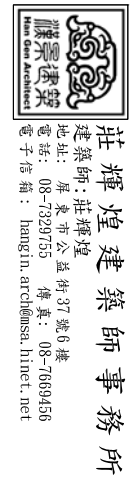 漢景建築
Han Gen Architect
莊輝煌建築師事務所
建築師:莊輝煌
地址:屏東市公益街37號6樓
電話: 08-7329755 傳真: 08-7669456
電子信箱: hangin.arch@msa.hinet.net